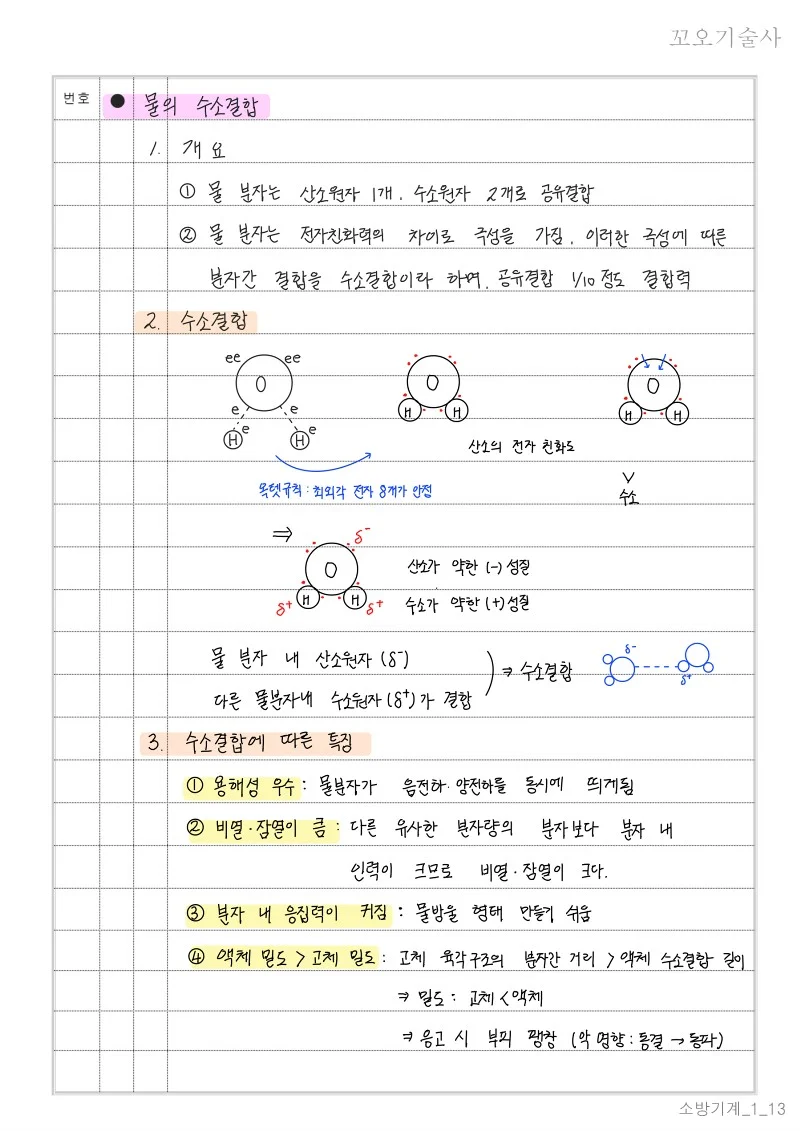 꼬오기술사
번호 ● 물의 수소결합
1. 개요
① 물 분자는 산소원자 1개, 수소원자 2개로 공유결합
② 물 분자는 전자친화력의 차이로 극성을 가짐, 이러한 극성에 따른
분자간 결합을 수소결합이라 하며, 공유결합 1/10 정도 결합력
2. 수소결합
ee ee
O O O
e e
H e H e H H H H
산소의 전자 친화도
옥텟규칙 : 최외각 전자 8개가 안정
∨
수소
⇒ δ-
O 산소가 약한 (-) 성질
δ+ H H δ+ 수소가 약한 (+) 성질
물 분자 내 산소원자 (δ-)
⇒ 수소결합
δ-
δ+
다른 물분자내 수소원자 (δ+)가 결합
3. 수소결합에 따른 특징
① 용해성 우수 : 물분자가 음전하·양전하를 동시에 띄게됨
② 비열·잠열이 큼 : 다른 유사한 분자량의 분자보다 분자 내
인력이 크므로 비열·잠열이 크다.
③ 분자 내 응집력이 커짐 : 물방울 형태 만들기 쉬움
④ 액체 밀도 > 고체 밀도 : 고체 육각구조의 분자간 거리 > 액체 수소결합 길이
⇒ 밀도 : 고체 < 액체
⇒ 응고 시 부피 팽창 (악영향 : 동결 → 동파)
소방기계_1_13